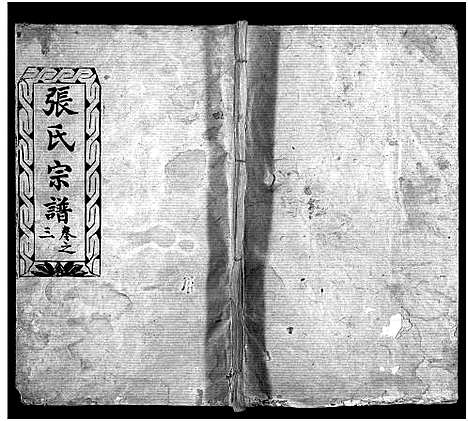 張氏宗譜卷之三